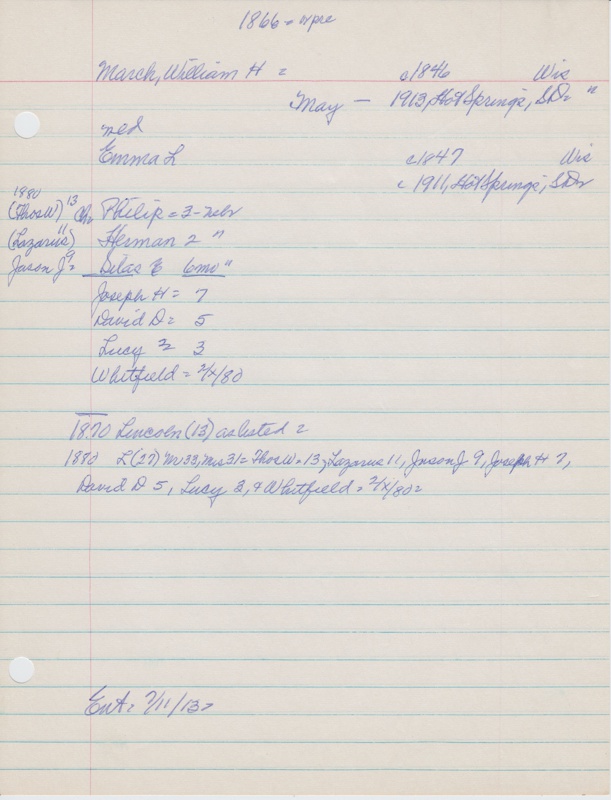 1866 = wpee
March, William H = c1846 Wis
May — 1913, Hot Springs, SD= "
med
Emma L c1847 Wis
c 1911, Hot Springs, SD=
1880
(Thos W) 13 Ch= Philip = 3 - Nebr
(Lazarus) 11 Herman 2 "
Jason J 9 = Silas E 6mo "
Joseph H = 7
David D = 5
Lucy = 3
Whitfield = 2/x/80
1870 Lincoln (13) as listed =
1880 L (27) Mr 33, Mrs 31 = Thos W = 13, Lazarus 11, Jason J 9, Joseph H 7,
David D 5, Lucy 3, + Whitfield = 2/x/80 =
Ent = 7/11/13 =